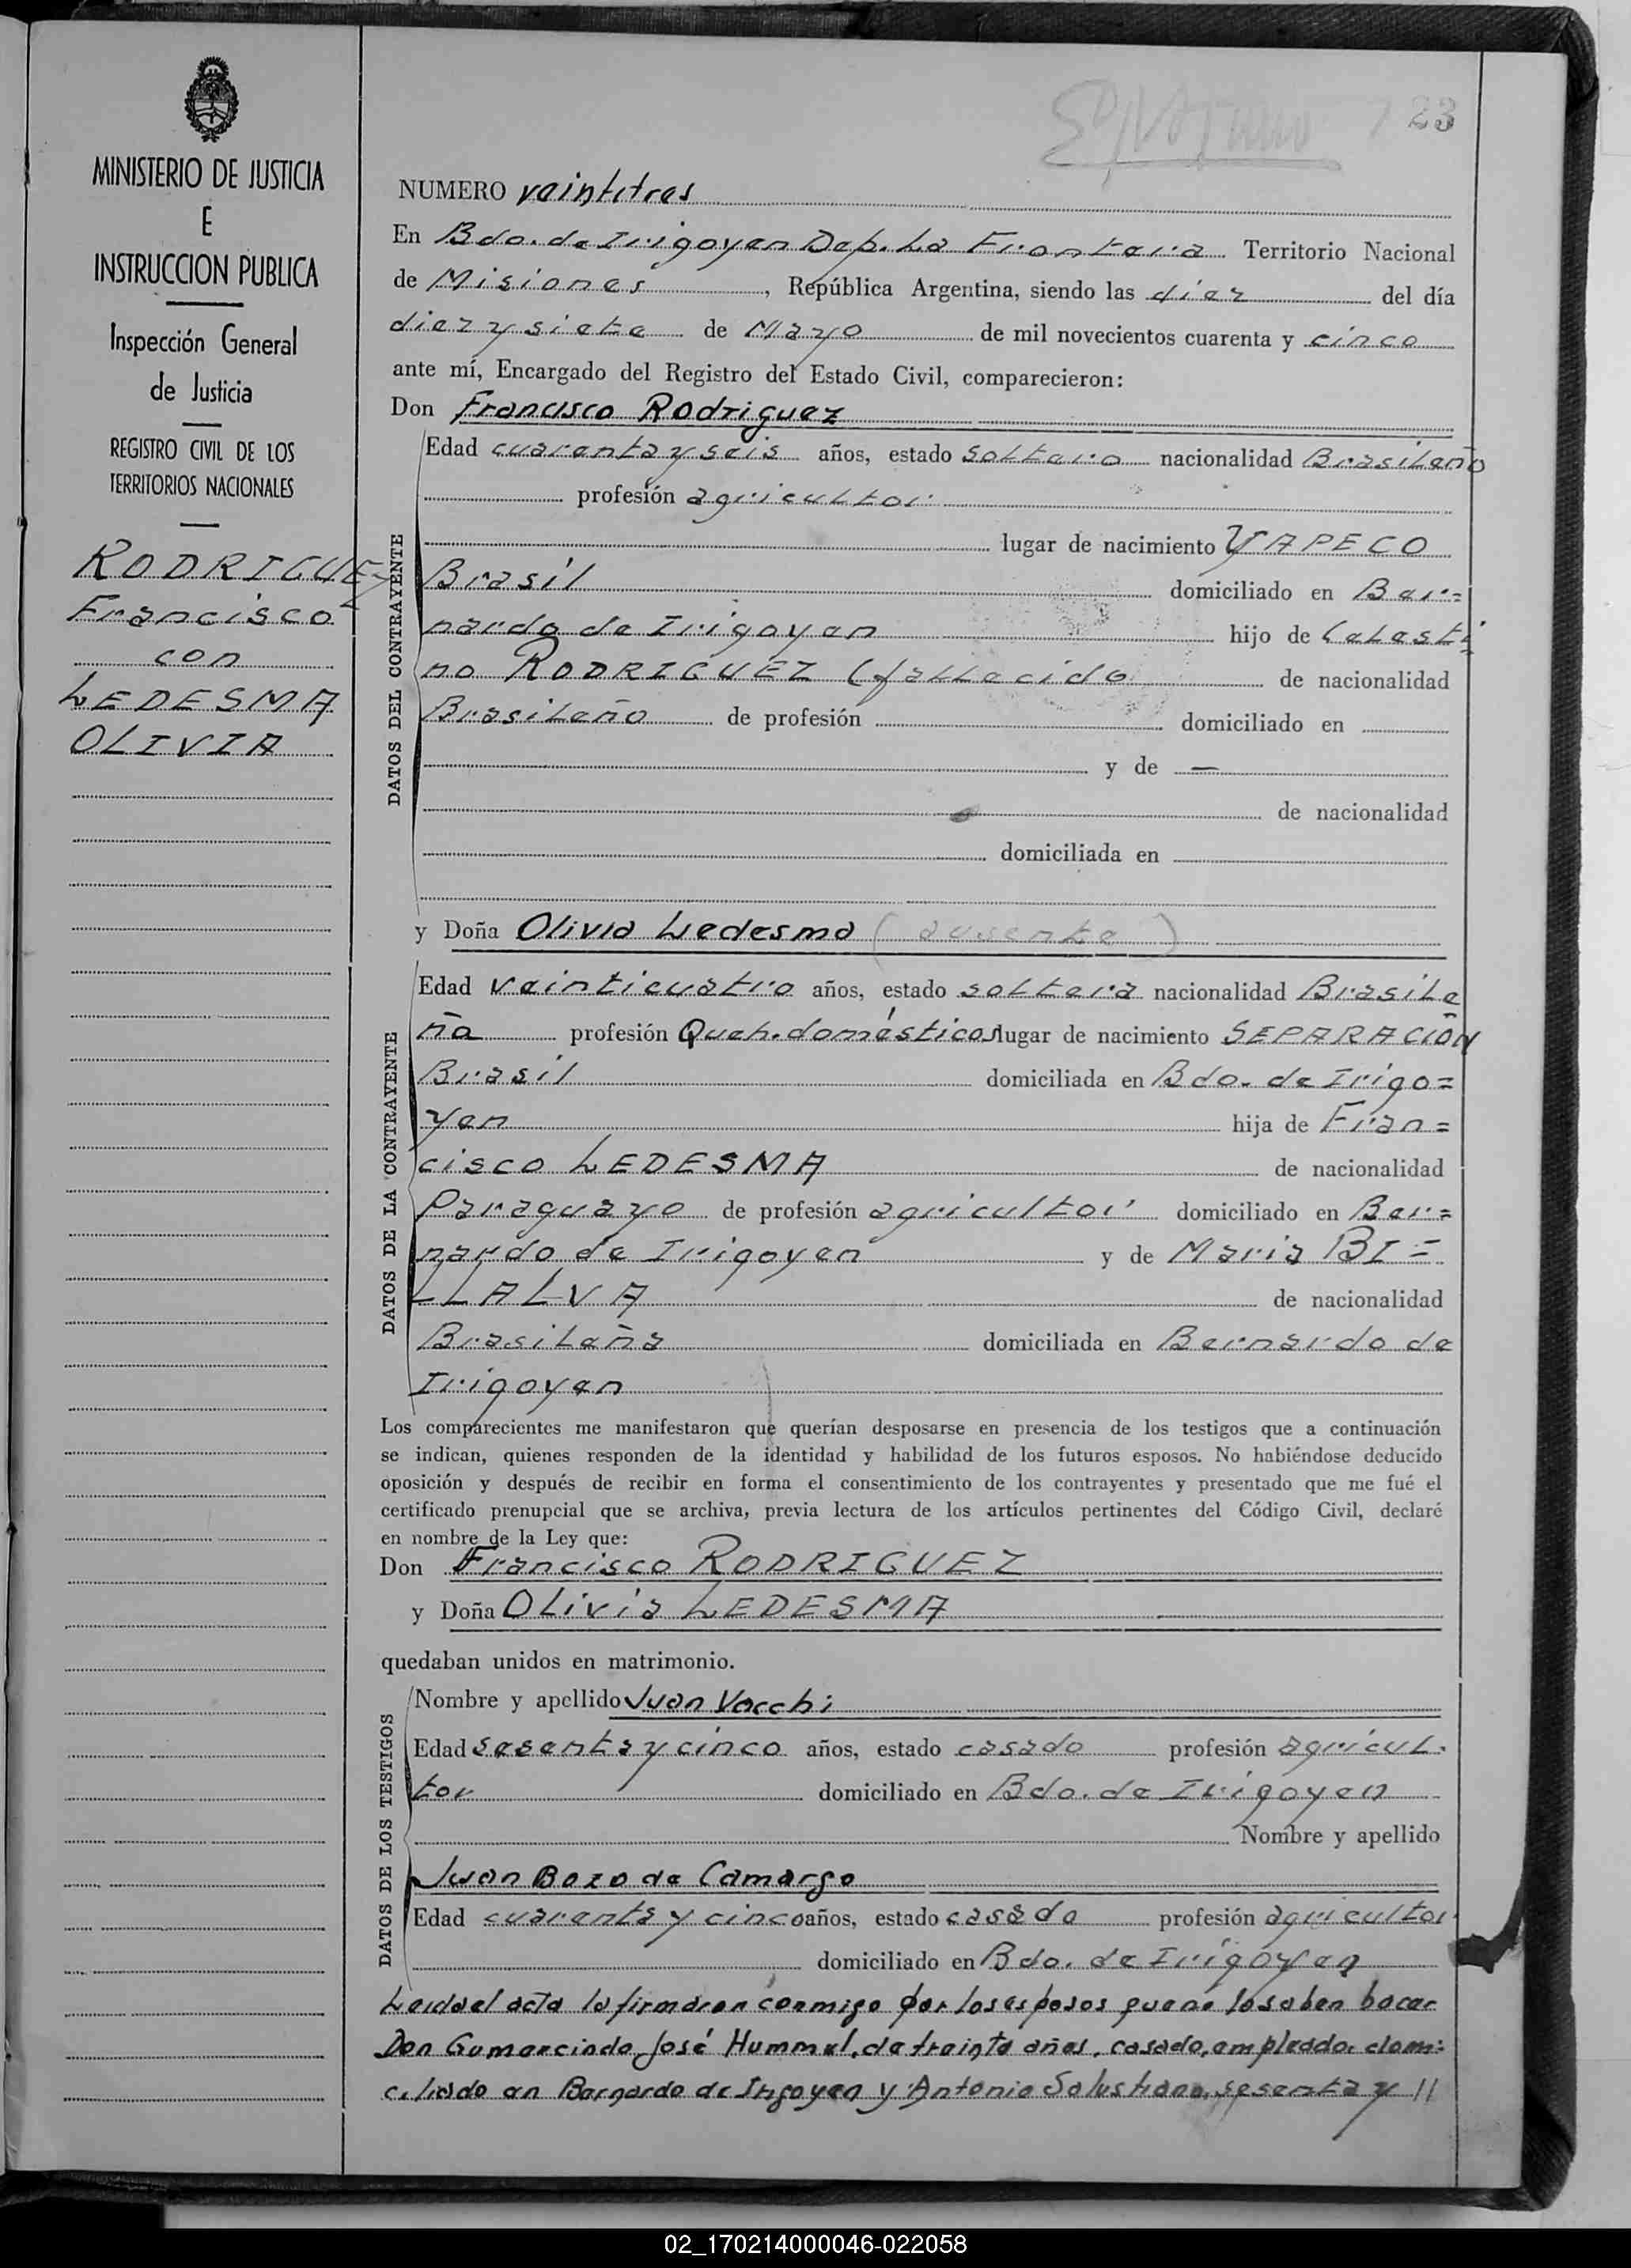 23
MINISTERIO DE JUSTICIA
E
INSTRUCCION PUBLICA
Inspección General
de Justicia
REGISTRO CIVIL DE LOS
TERRITORIOS NACIONALES
RODRIGUEZ
Francisco
con
LEDESMA
OLIVIA
NUMERO veintitres
En Bdo. de Irigoyen Dep. La Frontera Territorio Nacional
de Misiones, República Argentina, siendo las diez del día
diez y siete de Mayo de mil novecientos cuarenta y cinco
ante mí, Encargado del Registro del Estado Civil, comparecieron:
Don Francisco Rodriguez
DATOS DEL CONTRAYENTE
Edad cuarenta y seis años, estado soltero nacionalidad Brasileño
profesión agricultor
lugar de nacimiento YAPECO
Brasil domiciliado en Ber=
nardo de Irigoyen hijo de Celesti
no RODRIGUEZ (fallecido de nacionalidad
Brasileño de profesión domiciliado en
y de —
de nacionalidad
domiciliada en
y Doña Olivia Ledesma (ausente)
DATOS DE LA CONTRAYENTE
Edad veinticuatro años, estado soltera nacionalidad Brasile
ña profesión Queh. domésticos lugar de nacimiento SEPARACIÓN
Brasil domiciliada en Bdo. de Irigo=
yen hija de Fran=
cisco LEDESMA de nacionalidad
Paraguayo de profesión agricultor domiciliado en Ber=
nardo de Irigoyen y de Maria BI=
LLALVA de nacionalidad
Brasileña domiciliada en Bernardo de
Irigoyen
Los comparecientes me manifestaron que querían desposarse en presencia de los testigos que a continuación
se indican, quienes responden de la identidad y habilidad de los futuros esposos. No habiéndose deducido
oposición y después de recibir en forma el consentimiento de los contrayentes y presentado que me fué el
certificado prenupcial que se archiva, previa lectura de los artículos pertinentes del Código Civil, declaré
en nombre de la Ley que:
Don Francisco RODRIGUEZ
y Doña Olivia LEDESMA
quedaban unidos en matrimonio.
DATOS DE LOS TESTIGOS
Nombre y apellido Juan Vacchi
Edad sesenta y cinco años, estado casado profesión agricul-
tor domiciliado en Bdo. de Irigoyen
Nombre y apellido
Juan Bozo de Camargo
Edad cuarenta y cinco años, estado casado profesión agricultor
domiciliado en Bdo. de Irigoyen
Leida el acta la firmaron conmigo por los esposos que no lo saben hacer
Don Gumercindo José Hummel, de treinta años, casado, empleado, domi=
ciliado en Bernardo de Irigoyen y Antonio Salustiano, sesenta y //
02_170214000046-022058